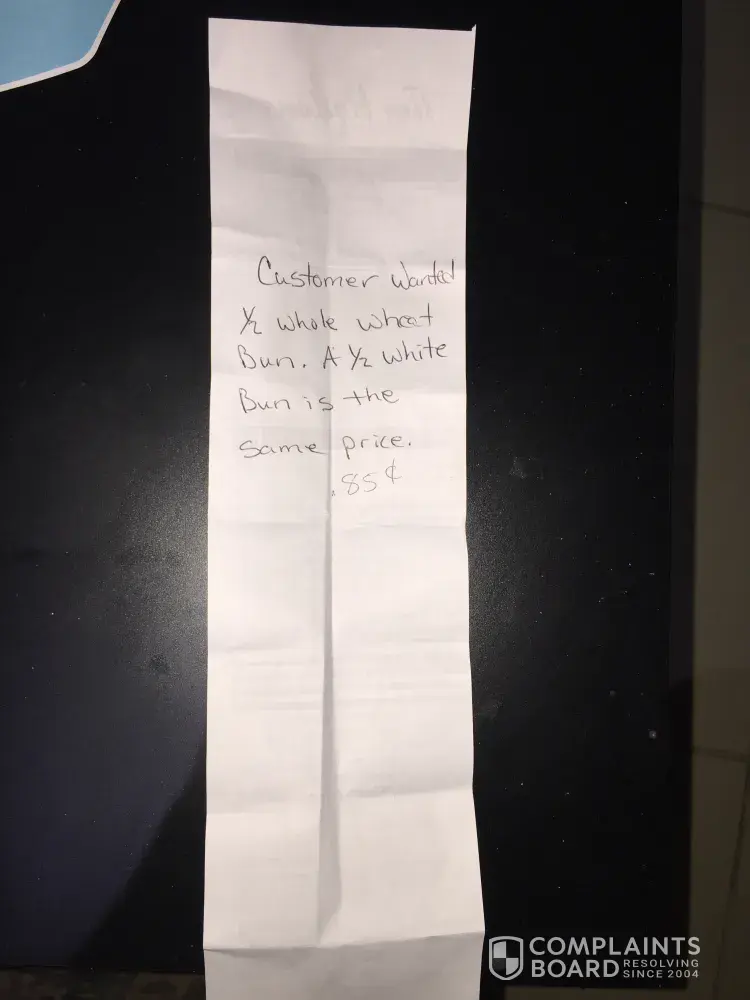 Customer Wanted
½ whole wheat
Bun. A ½ white
Bun is the
same price.
.85¢
COMPLAINTS
BOARD RESOLVING
SINCE 2004